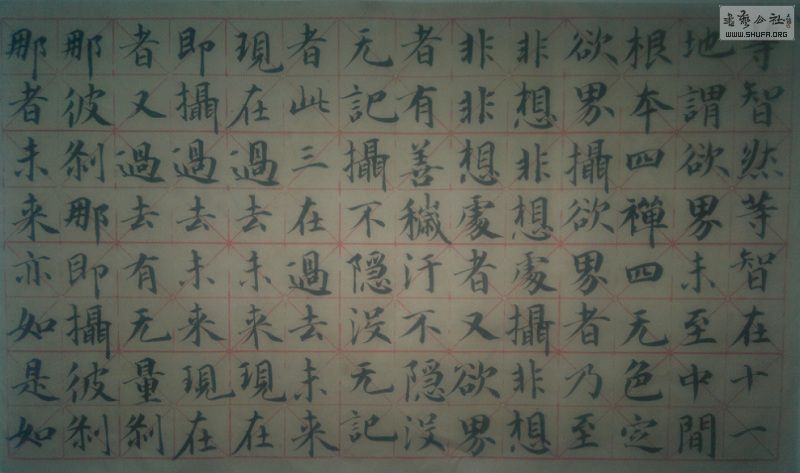 等智然等智在十一
地謂欲界未至中間
根本四禪四无色定
欲界攝欲界者乃至
非想非想處攝非想
非非想處者又欲界
者有善穢汙不隱没
无記攝不隱没无記
者此三在過去未来
現在過去未来現在
即攝過去未来現在
者又過去有无量刹
那彼刹那即攝彼刹
那者未来亦如是如
書藝公社
WWW.SHUFA.ORG